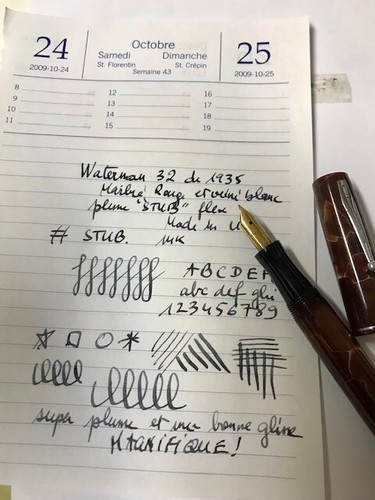 24
2009-10-24
Octobre
Samedi Dimanche
St. Florentin St. Crépin
Semaine 43
25
2009-10-25
8 12 16
9 13 17
10 14 18
11 15 19
Waterman 32 de 1935
Marbré Rouge et veiné blanc
plume "STUB" flex
Made in U
# STUB. ink
ABCDEF
abc def ghi
123456789
super plume et une bonne glisse
MAGNIFIQUE!